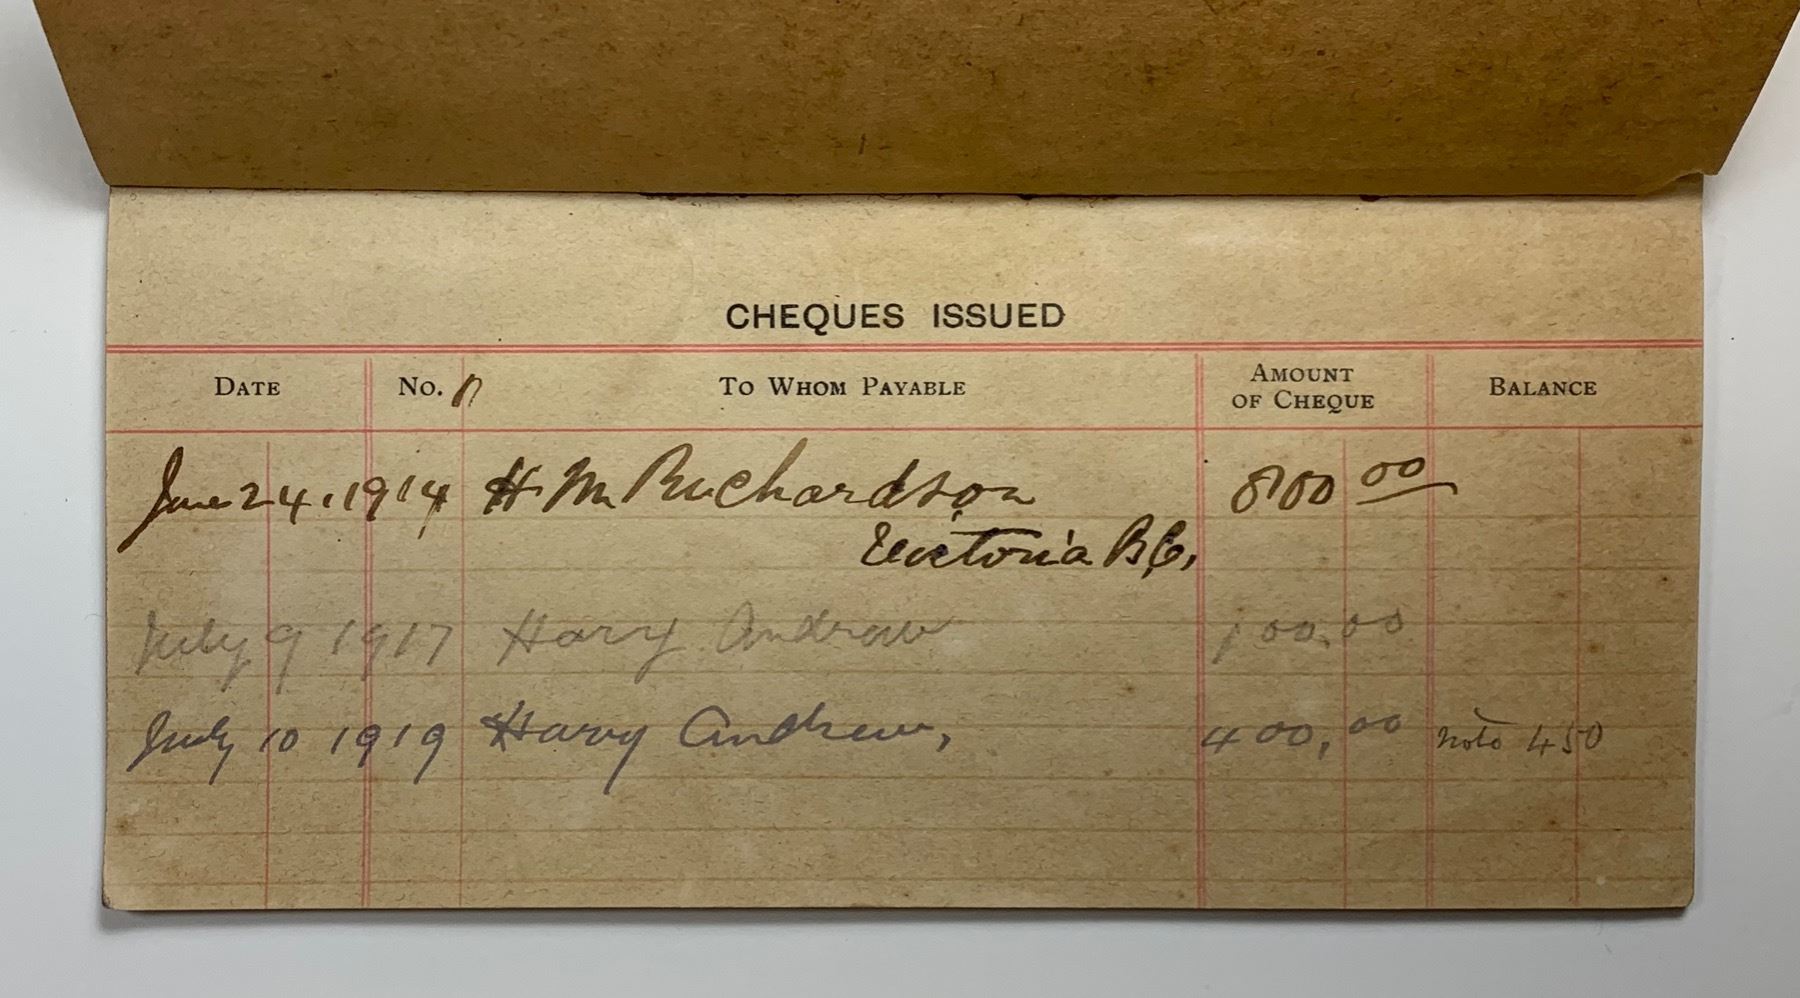 CHEQUES ISSUED
DATE No. TO WHOM PAYABLE AMOUNT OF CHEQUE BALANCE
June 24, 1914 H. M Richardson 800 00
Victoria B.C.
July 9 1917 Harry Andrew 100.00
July 10 1919 Harry Andrew, 400,00 note 450